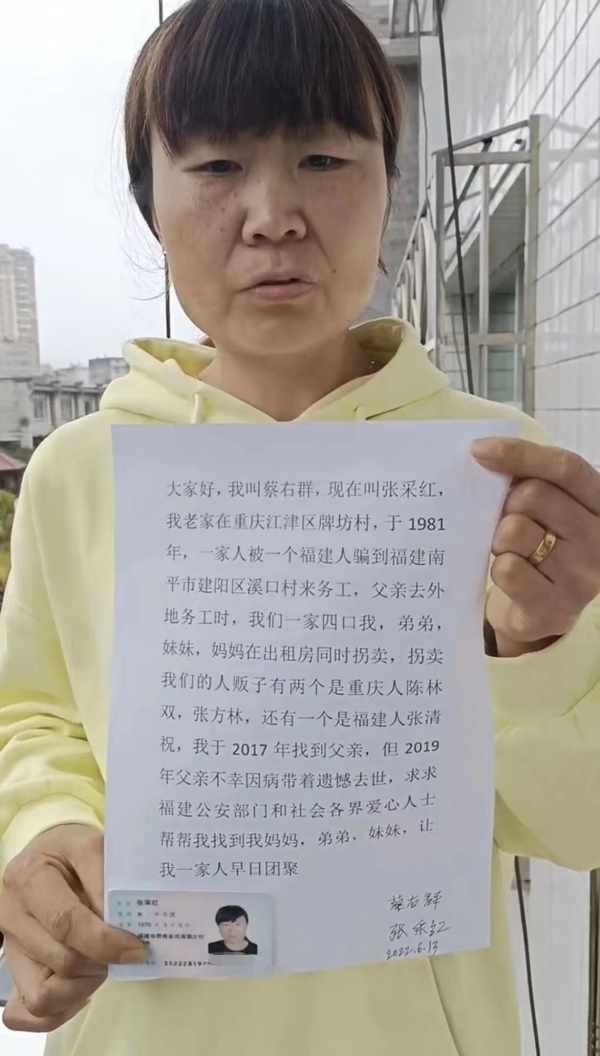 大家好，我叫蔡右群，现在叫张采红，
我老家在重庆江津区牌坊村，于 1981
年，一家人被一个福建人骗到福建南
平市建阳区溪口村来务工，父亲去外
地务工时，我们一家四口我，弟弟，
妹妹，妈妈在出租房同时拐卖，拐卖
我们的人贩子有两个是重庆人陈林
双，张方林，还有一个是福建人张清
祝，我于 2017 年找到父亲，但 2019
年父亲不幸因病带着遗憾去世，求求
福建公安部门和社会各界爱心人士
帮帮我找到我妈妈，弟弟，妹妹，让
我一家人早日团聚
蔡右群
张采红
2022.6.13